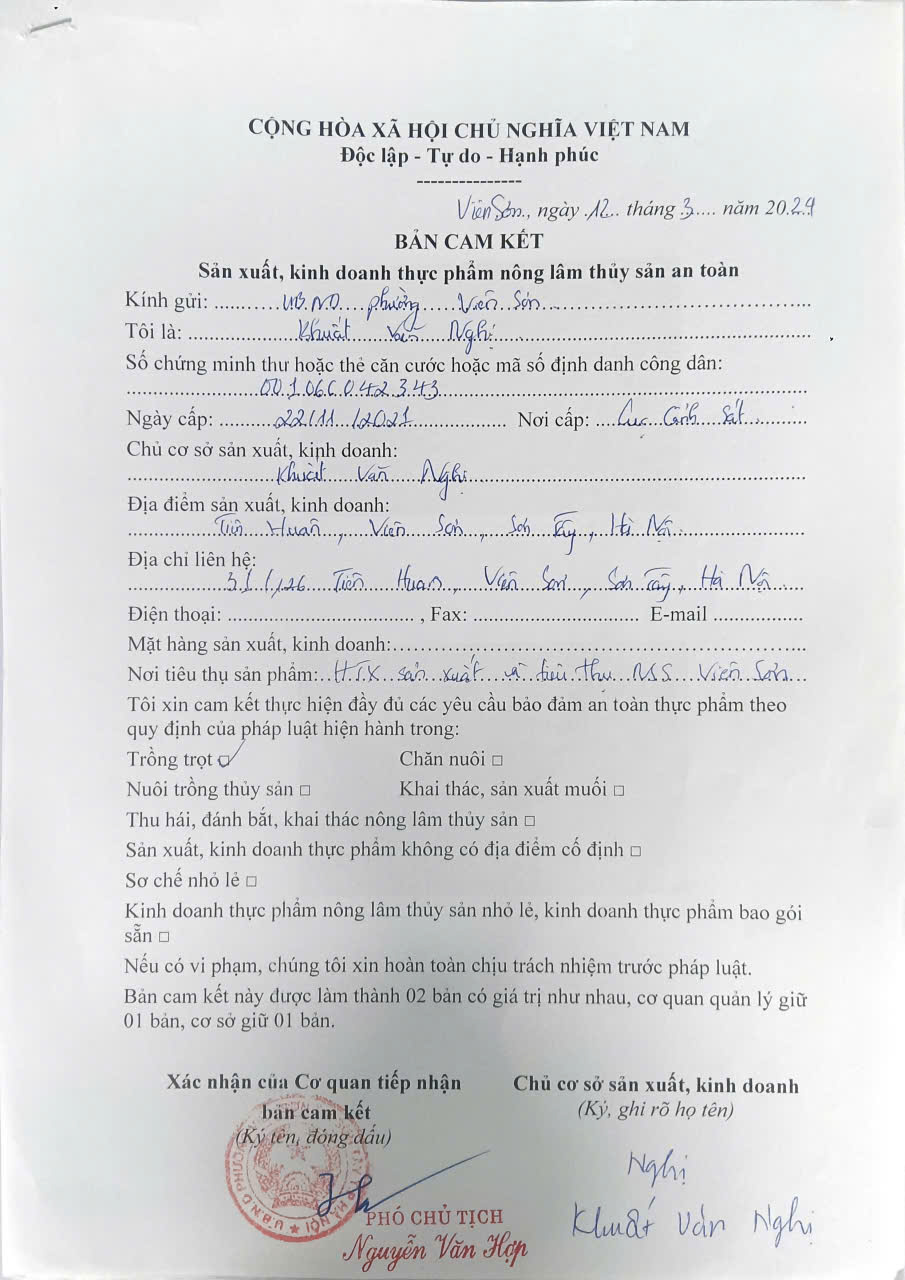 CỘNG HÒA XÃ HỘI CHỦ NGHĨA VIỆT NAM
Độc lập - Tự do - Hạnh phúc
---------------
Viên Sơn., ngày .12.. tháng .3.... năm 20.24
BẢN CAM KẾT
Sản xuất, kinh doanh thực phẩm nông lâm thủy sản an toàn
Kính gửi: UBND phường Viên Sơn
Tôi là: Khuất Văn Nghị
Số chứng minh thư hoặc thẻ căn cước hoặc mã số định danh công dân:
001066042343
Ngày cấp: 22/11/2021 Nơi cấp: Cục Cảnh Sát
Chủ cơ sở sản xuất, kinh doanh:
Khuất Văn Nghị
Địa điểm sản xuất, kinh doanh:
Tiền Huân, Viên Sơn, Sơn Tây, Hà Nội
Địa chỉ liên hệ:
Tiền Huân, Viên Sơn, Sơn Tây, Hà Nội
Điện thoại: ................................ , Fax: ............................ E-mail ................
Mặt hàng sản xuất, kinh doanh:
Nơi tiêu thụ sản phẩm: HTX sản xuất và tiêu thụ Viên Sơn
Tôi xin cam kết thực hiện đầy đủ các yêu cầu bảo đảm an toàn thực phẩm theo
quy định của pháp luật hiện hành trong:
Trồng trọt ☑ Chăn nuôi □
Nuôi trồng thủy sản □ Khai thác, sản xuất muối □
Thu hái, đánh bắt, khai thác nông lâm thủy sản □
Sản xuất, kinh doanh thực phẩm không có địa điểm cố định □
Sơ chế nhỏ lẻ □
Kinh doanh thực phẩm nông lâm thủy sản nhỏ lẻ, kinh doanh thực phẩm bao gói
sẵn □
Nếu có vi phạm, chúng tôi xin hoàn toàn chịu trách nhiệm trước pháp luật.
Bản cam kết này được làm thành 02 bản có giá trị như nhau, cơ quan quản lý giữ
01 bản, cơ sở giữ 01 bản.
Xác nhận của Cơ quan tiếp nhận
bản cam kết
(Ký tên, đóng dấu)
PHÓ CHỦ TỊCH
Nguyễn Văn Hợp
Chủ cơ sở sản xuất, kinh doanh
(Ký, ghi rõ họ tên)
Nghị
Khuất Văn Nghị